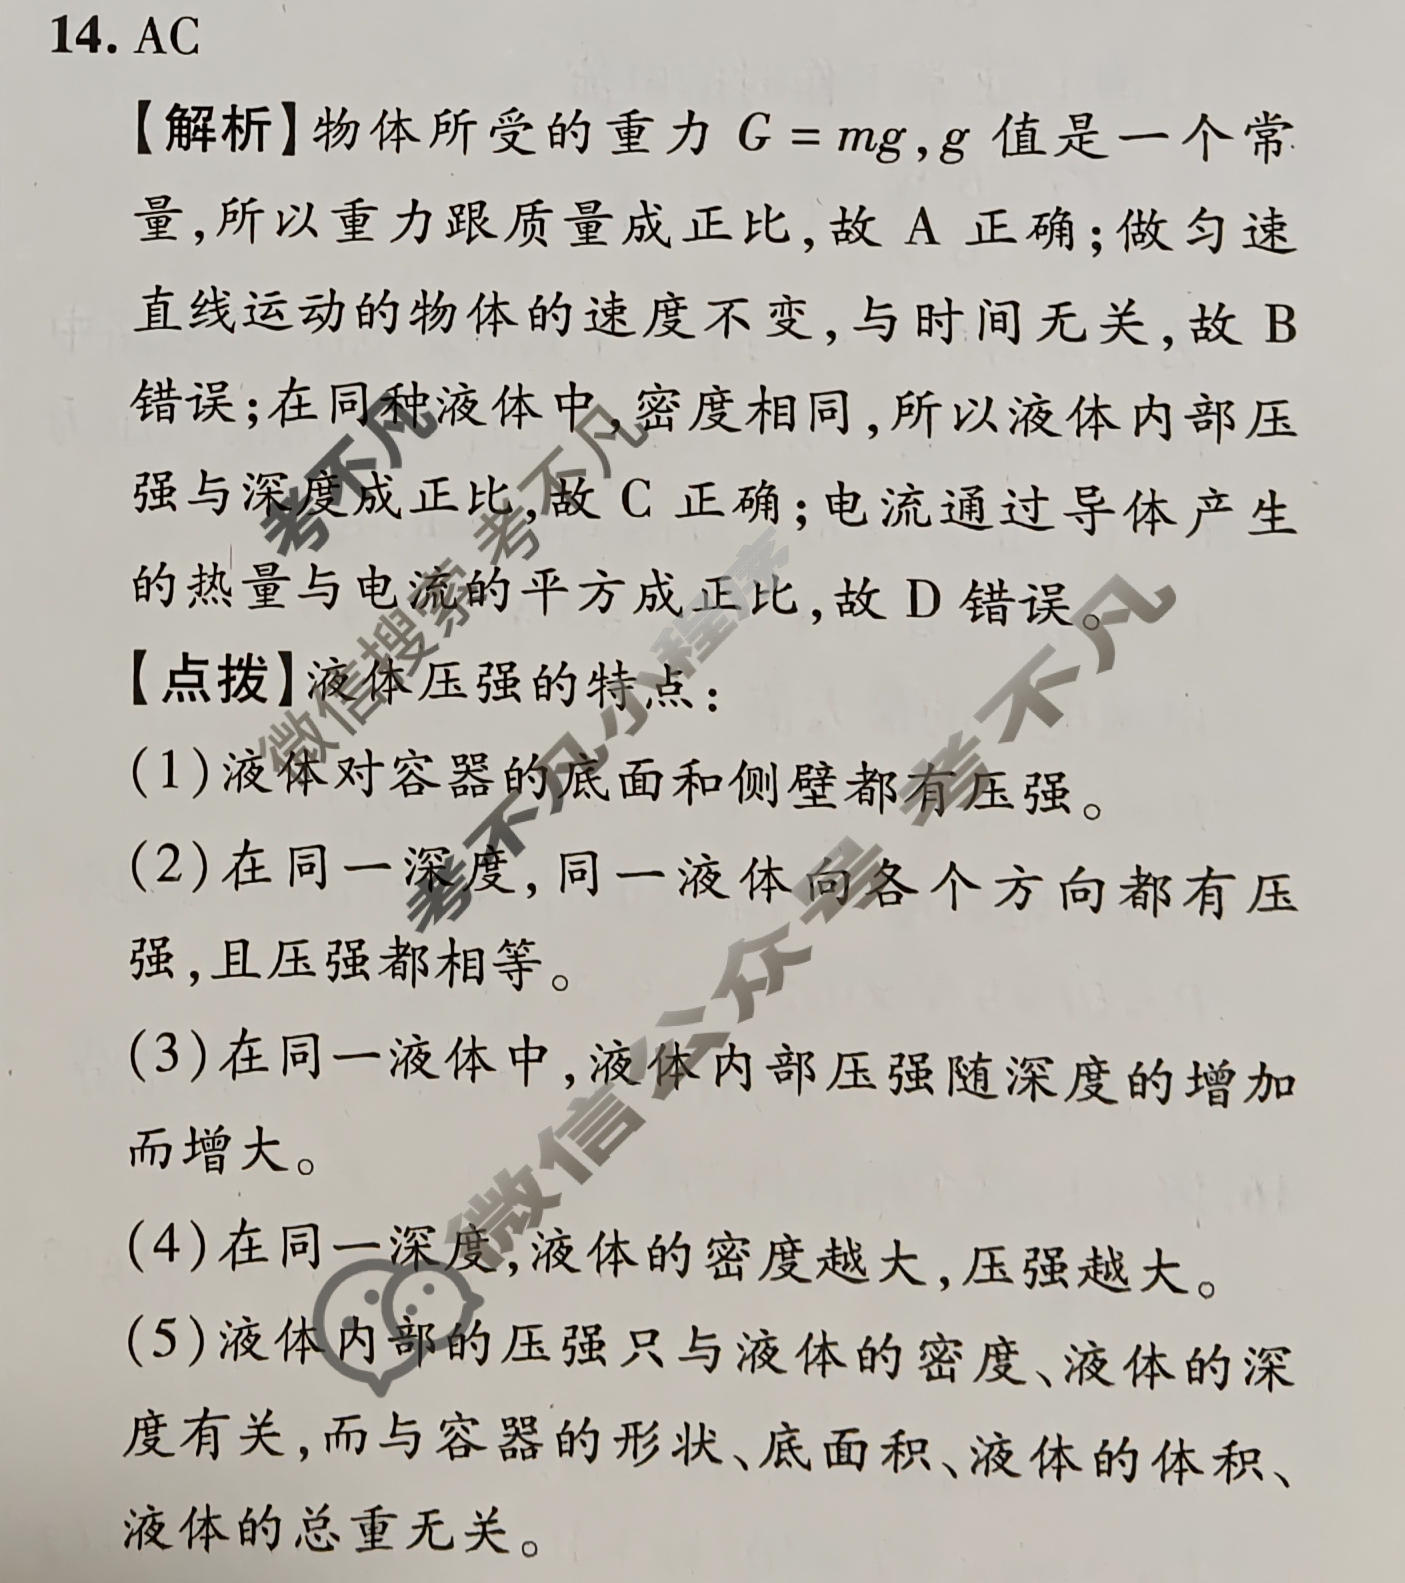 14. AC
【解析】物体所受的重力 G = mg,g 值是一个常
量,所以重力跟质量成正比,故 A 正确;做匀速
直线运动的物体的速度不变,与时间无关,故 B
错误;在同种液体中,密度相同,所以液体内部压
强与深度成正比,故 C 正确;电流通过导体产生
的热量与电流的平方成正比,故 D 错误。
【点拨】液体压强的特点:
(1)液体对容器的底面和侧壁都有压强。
(2)在同一深度,同一液体向各个方向都有压
强,且压强都相等。
(3)在同一液体中,液体内部压强随深度的增加
而增大。
(4)在同一深度,液体的密度越大,压强越大。
(5)液体内部的压强只与液体的密度、液体的深
度有关,而与容器的形状、底面积、液体的体积、
液体的总重无关。
考不凡
微信搜索 考不凡
考不凡小程序
微信公众号 考不凡